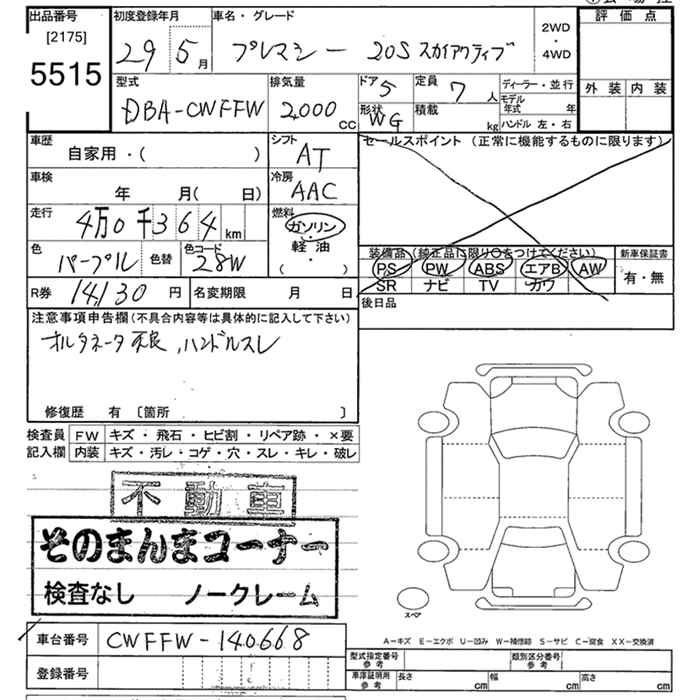 出品番号 初度登録年月 車名・グレード 評価点
[2175]
5515
29 5月 プレマシー 20S スカイアクティブ
2WD
・
4WD
外装 内装
型式 排気量 ドア 5 定員 7人 ディーラー・並行
DBA-CWFFW 2,000cc 形状 WG 積載 kg
モデル年式 年
ハンドル 左・右
車歴 シフト セールスポイント (正常に機能するものに限ります)
自家用・( ) AT
車検 冷房
年 月( 日) AAC
走行 燃料
4万0千364km ガソリン・
軽油・
( )
色 色替 色コード
パープル 28W
装備品 (純正品に限り○をつけてください) 新車保証書
PS PW ABS エアB AW
SR ナビ TV カワ
有・無
R券 14,130円 名変期限 月 日
後日品
注意事項申告欄(不具合内容等は具体的に記入して下さい)
オルタネータ不良,ハンドルスレ
修復歴 有 〔箇所 〕
検査員 FW キズ・飛石・ヒビ割・リペア跡・×要
記入欄 内装 キズ・汚レ・コゲ・穴・スレ・キレ・破レ
不動車
そのまんまコーナー
検査なし ノークレーム
スペア
A-キズ E-エクボ U-凹み W-補修跡 S-サビ C-腐食 XX-交換済
車台番号 CWFFW-140668
登録番号
型式指定番号 参考 類別区分番号 参考
車庫証明用 参考 長さ cm 幅 cm 高さ cm